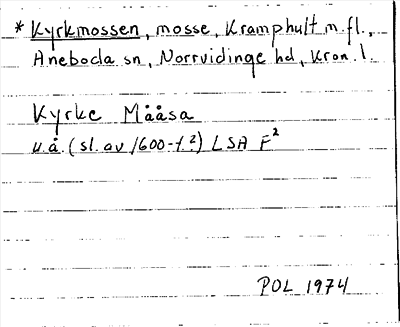 * Kyrkmossen, mosse, Kramphult m.fl.,
Aneboda sn, Norrvidinge hd, Kron. l.
Kyrke Mååsa
u.å. (sl. av 1600-t.?) LSA F²
POL 1974